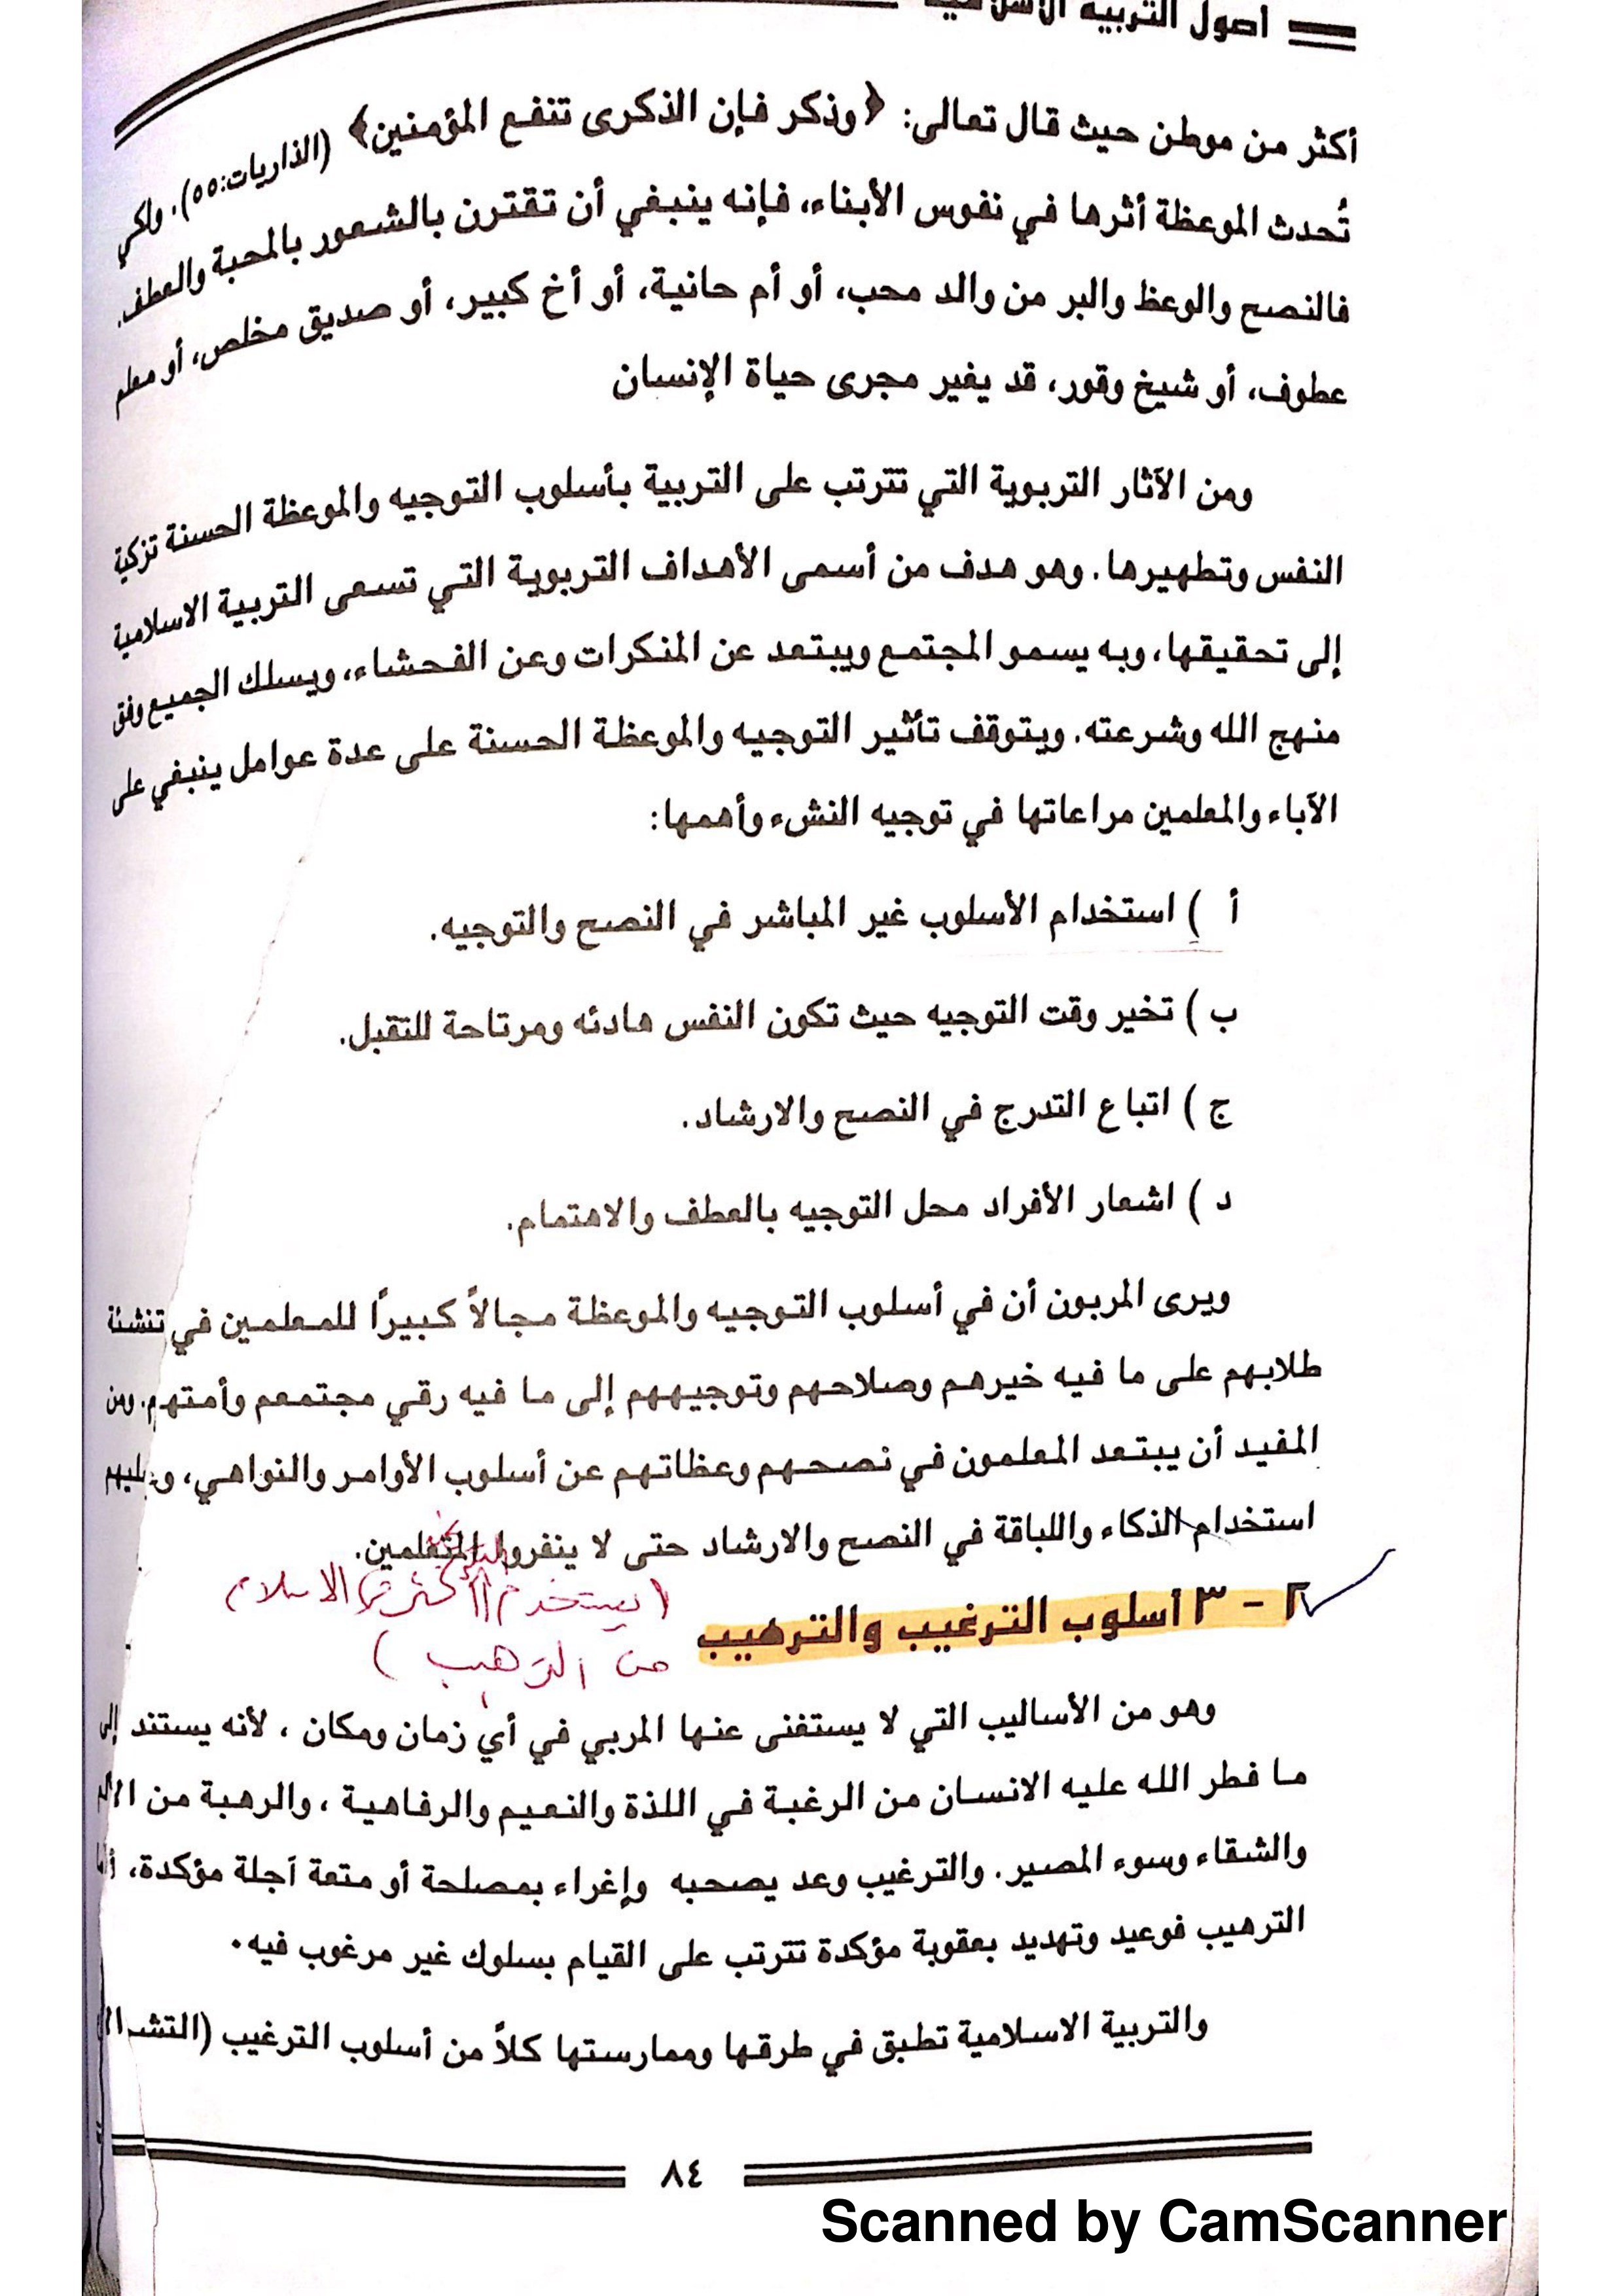 أصول التربية الاسلامية
أكثر من موطن حيث قال تعالى: ﴿وذكر فإن الذكرى تنفع المؤمنين﴾ (الذاريات:٥٥). ولكي
تُحدث الموعظة أثرها في نفوس الأبناء، فإنه ينبغي أن تقترن بالشعور بالمحبة والعطف.
فالنصح والوعظ والبر من والد محب، أو أم حانية، أو أخ كبير، أو صديق مخلص، أو معلم
عطوف، أو شيخ وقور، قد يغير مجرى حياة الإنسان
ومن الآثار التربوية التي تترتب على التربية بأسلوب التوجيه والموعظة الحسنة تزكية
النفس وتطهيرها. وهو هدف من أسمى الأهداف التربوية التي تسعى التربية الاسلامية
إلى تحقيقها، وبه يسمو المجتمع ويبتعد عن المنكرات وعن الفحشاء، ويسلك الجميع وفق
منهج الله وشرعته. ويتوقف تأثير التوجيه والموعظة الحسنة على عدة عوامل ينبغي على
الآباء والمعلمين مراعاتها في توجيه النشء وأهمها:
أ ) استخدام الأسلوب غير المباشر في النصح والتوجيه.
ب ) تخير وقت التوجيه حيث تكون النفس هادئه ومرتاحة للتقبل.
ج ) اتباع التدرج في النصح والارشاد.
د ) اشعار الأفراد محل التوجيه بالعطف والاهتمام.
ويرى المربون أن في أسلوب التوجيه والموعظة مجالاً كبيرًا للمعلمين في تنشئة
طلابهم على ما فيه خيرهم وصلاحهم وتوجيههم إلى ما فيه رقي مجتمعم وأمتهم. ومن
المفيد أن يبتعد المعلمون في نصحهم وعظاتهم عن أسلوب الأوامر والنواهي، وعليهم
استخدام الذكاء واللباقة في النصح والارشاد حتى لا ينفروا المتعلمين.
٢ - ٣ أسلوب الترغيب والترهيب
(يستخدم الترغيب أكثر في الاسلام
من الترهيب )
وهو من الأساليب التي لا يستغنى عنها المربي في أي زمان ومكان ، لأنه يستند إلى
ما فطر الله عليه الانسان من الرغبة في اللذة والنعيم والرفاهية ، والرهبة من الألم
والشقاء وسوء المصير. والترغيب وعد يصحبه وإغراء بمصلحة أو متعة آجلة مؤكدة، أما
الترهيب فوعيد وتهديد بعقوبة مؤكدة تترتب على القيام بسلوك غير مرغوب فيه.
والتربية الاسلامية تطبق في طرقها وممارستها كلاً من أسلوب الترغيب
٨٤
Scanned by CamScanner